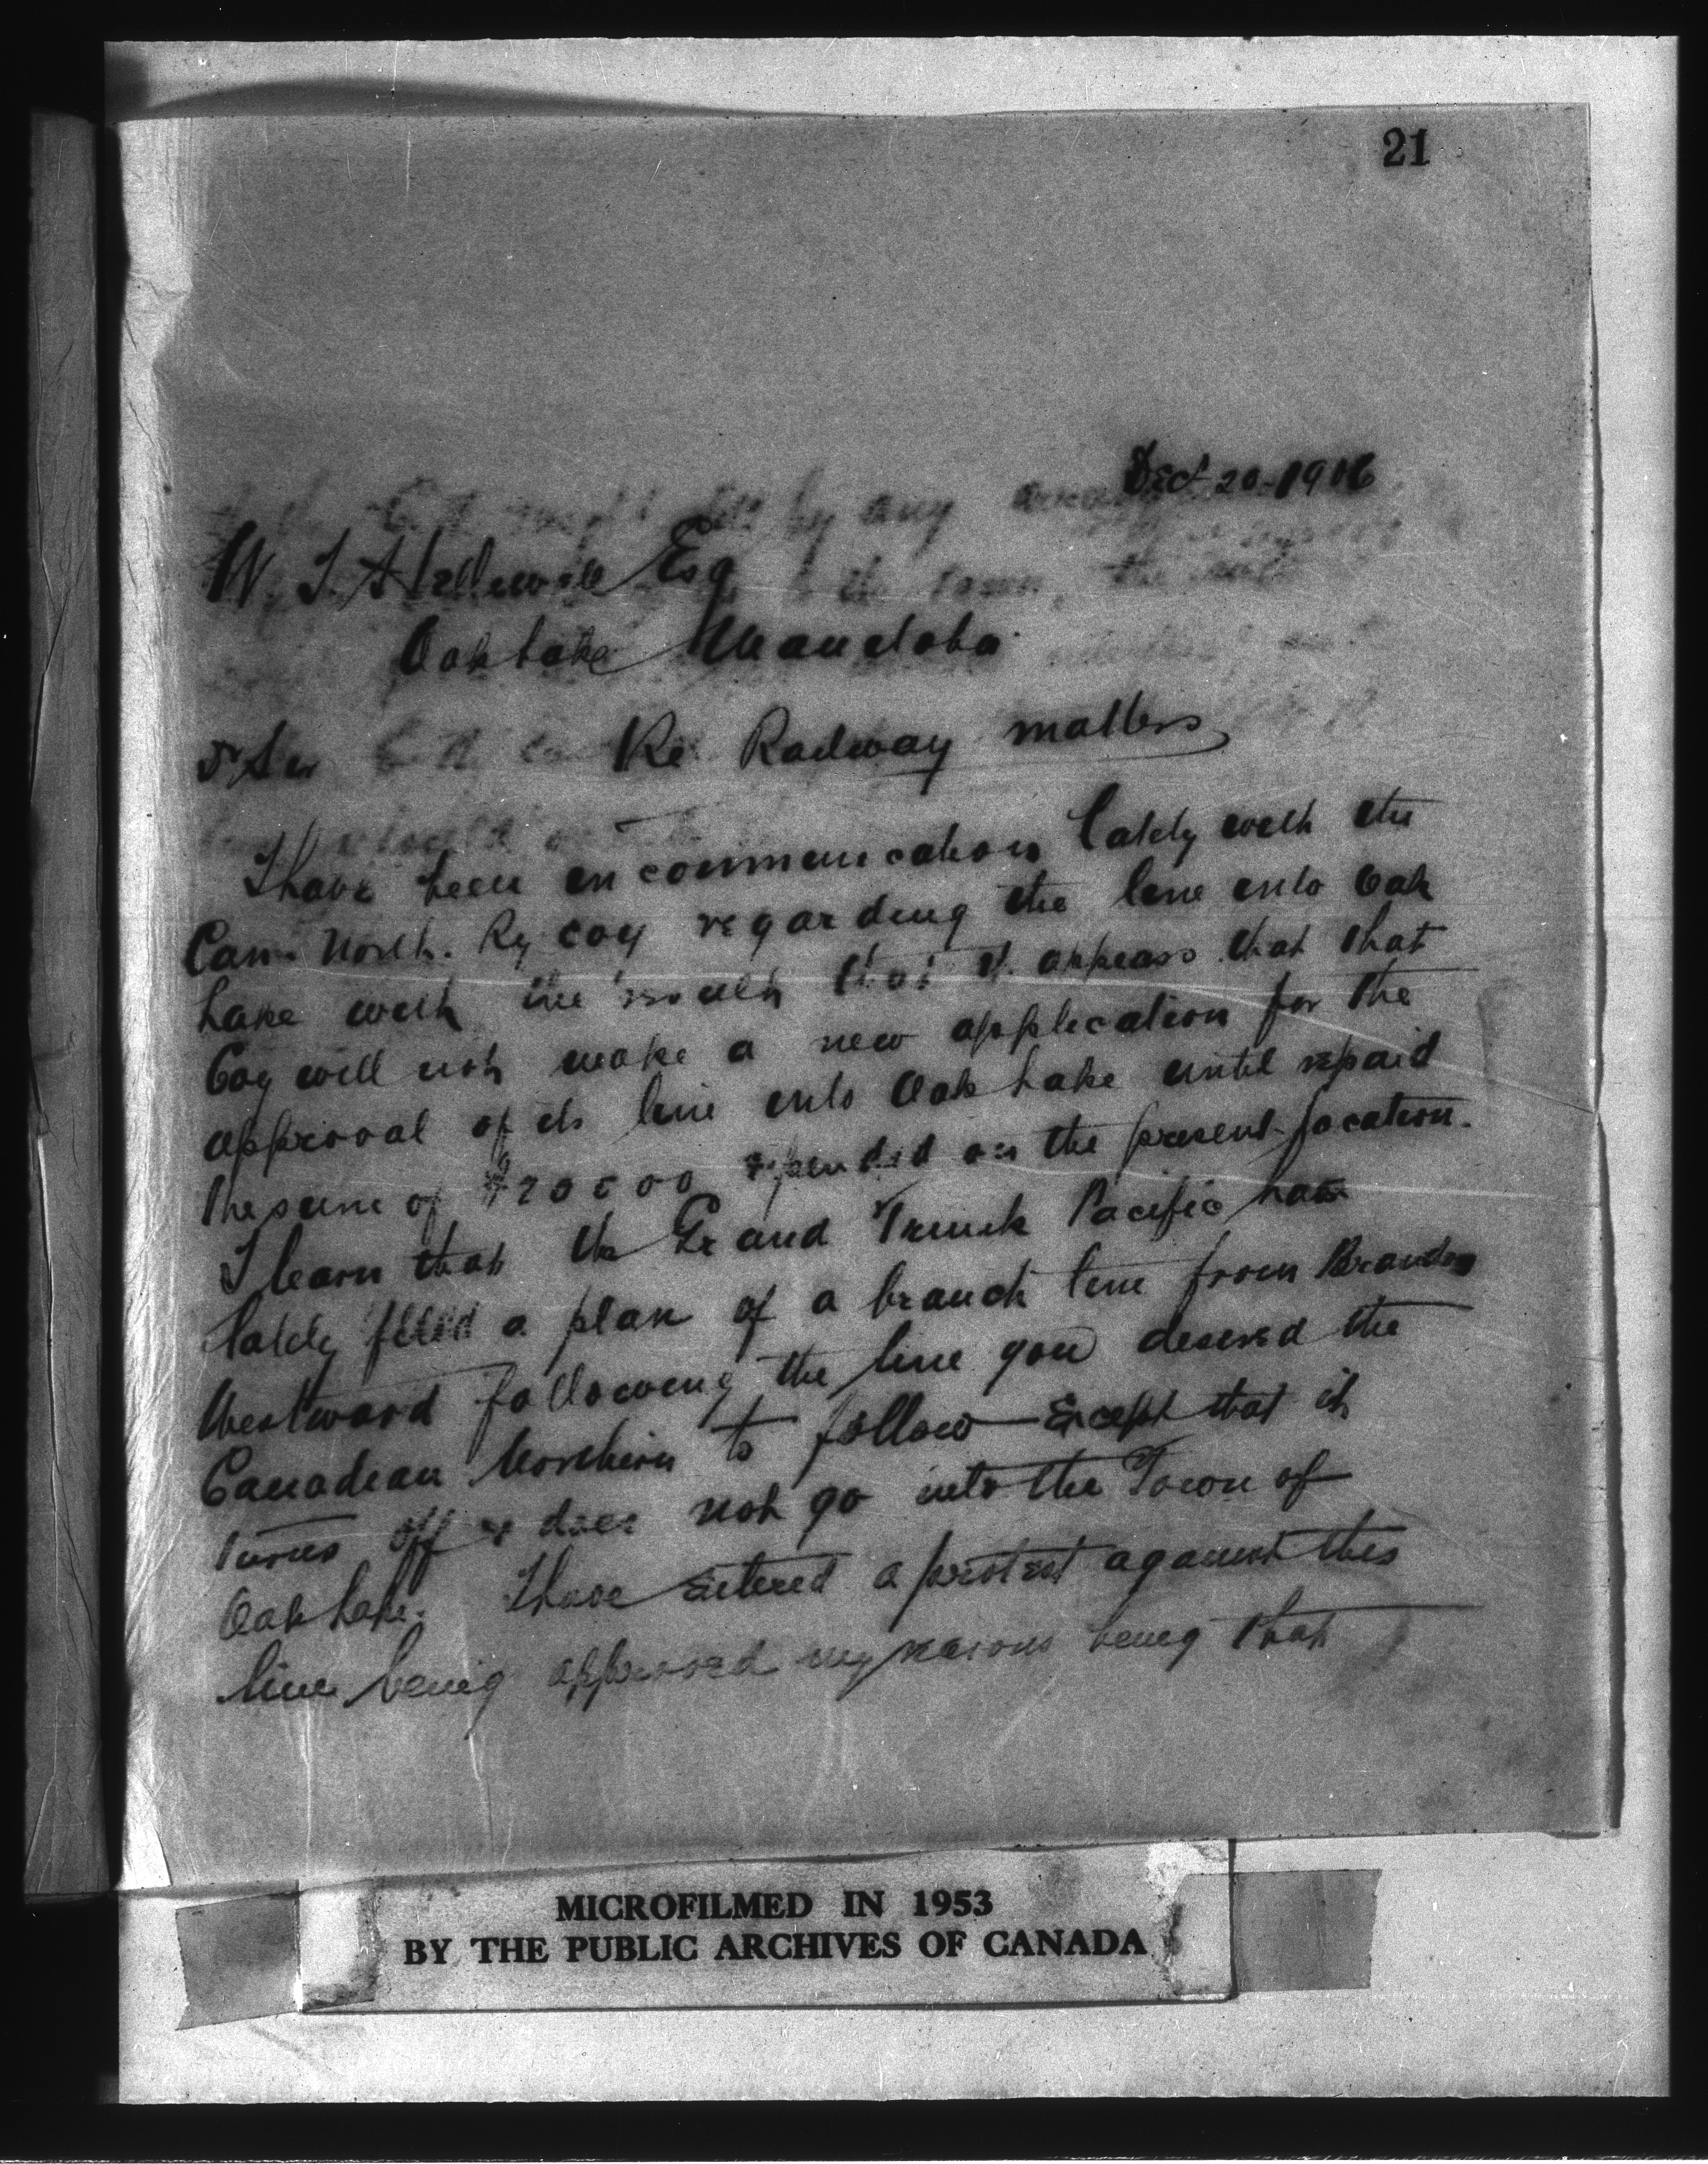 21
Dec 20-1906
W. J. Helliwell Esq
Oak Lake Manitoba
D Sir Re Railway matters
I have been in communication lately with the
Can. North. Ry Coy regarding the line into Oak
Lake with the result that it appears that that
Coy will not make a new application for the
approval of its line into Oak Lake until repaid
the sum of $20000 expended on the present location.
I learn that the Grand Trunk Pacific have
lately filed a plan of a branch line from Brandon
Westward following the line you desired the
Canadian Northern to follow Except that it
turns off & does not go into the Town of
Oak Lake. I have entered a protest against this
line being approved my reasons being that
MICROFILMED IN 1953
BY THE PUBLIC ARCHIVES OF CANADA